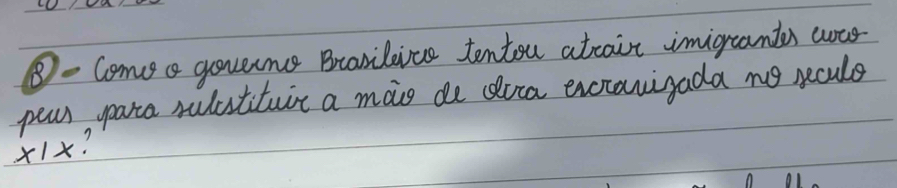 8 - Como o governo Brasileiro tentou atrair imigrantes euro
peus para substituir a mão de obra escravizada no seculo
XIX?